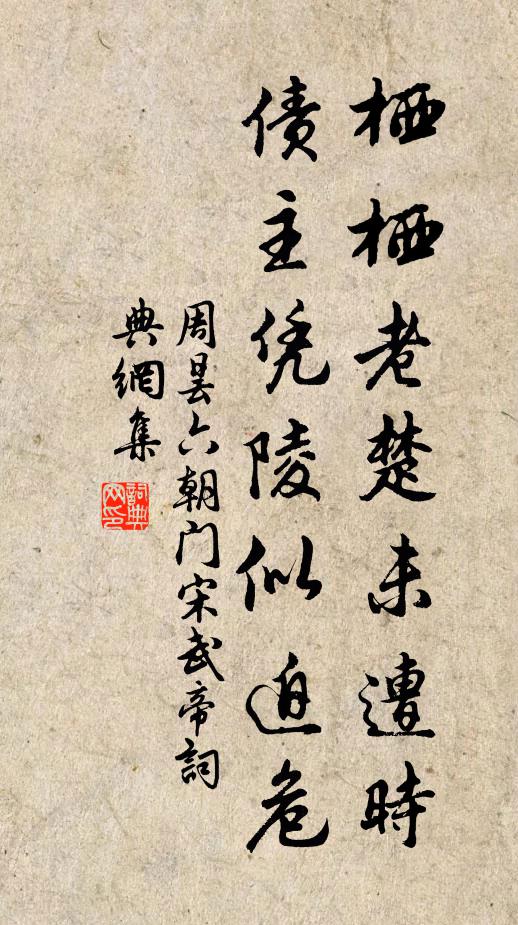 栖栖老楚未遭時
债主凭陵似迫危
周昙六朝门宋武帝詞
典網集
詞典
网印